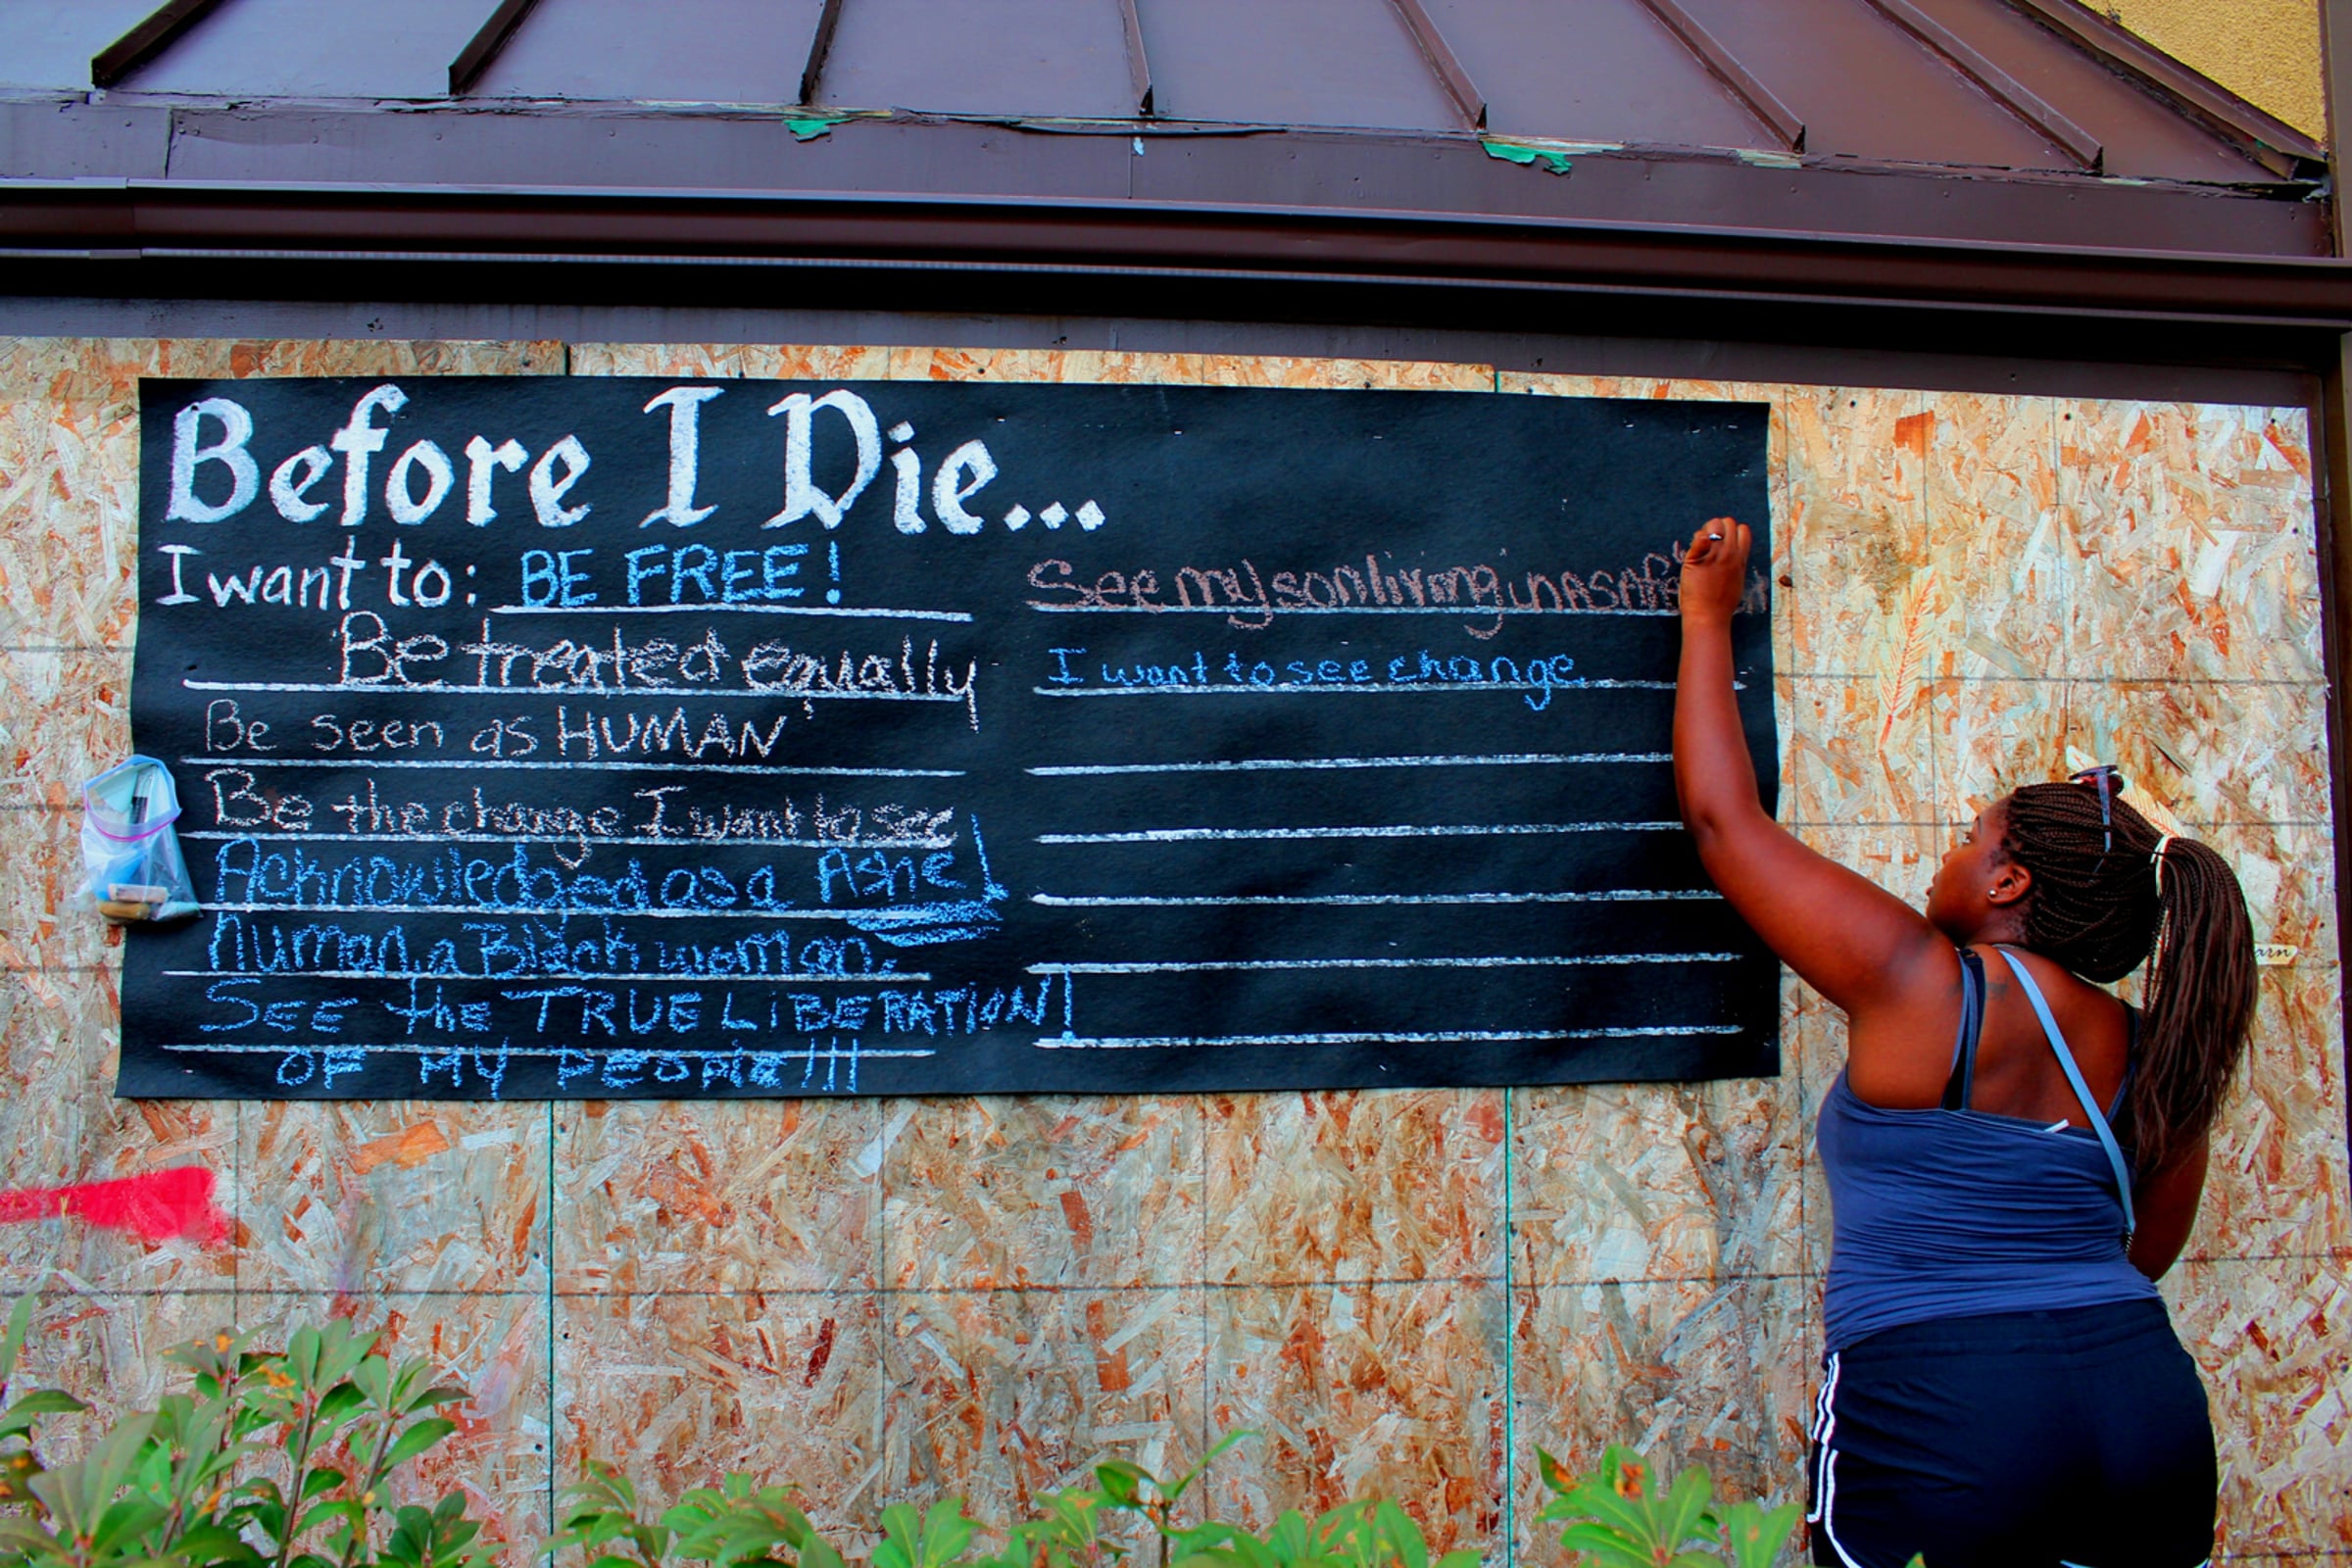 Before I Die...
I want to: BE FREE!
Be treated equally
Be seen as HUMAN
Be the change I want to see
Acknowledged as a Ashe
human, a Black woman.
SEE the TRUE LIBERATION!
OF MY PEOPLE!!!
See my son living in a safe
I want to see change.
arn